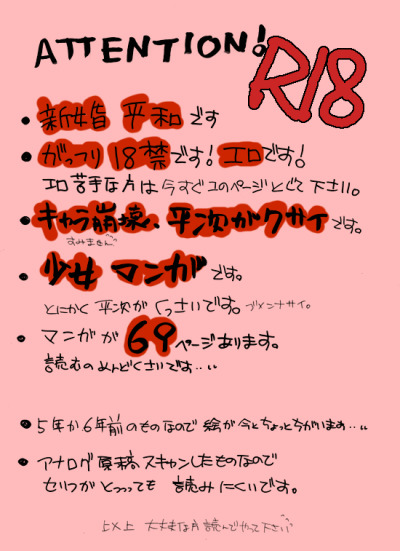 ATTENTION!
R18
• 新婚 平和です
• がっつり 18禁です! エロです!
エロ苦手な方は今すぐこのページとじて下さい。
• キャラ崩壊、平次がクサイです。
すみません
• 少女マンガです。
とにかく 平次がくっさいです。ゴメンナサイ。
• マンガが 69ページあります。
読むのめんどくさいです‥‥
• 5年か6年前のものなので 絵が今とちょっとちがいまめ‥‥
• アナログ原稿スキャンしたものなので
セリフがとっっても 読みにくいです。
以上 大丈夫な方 読んでやって下さい